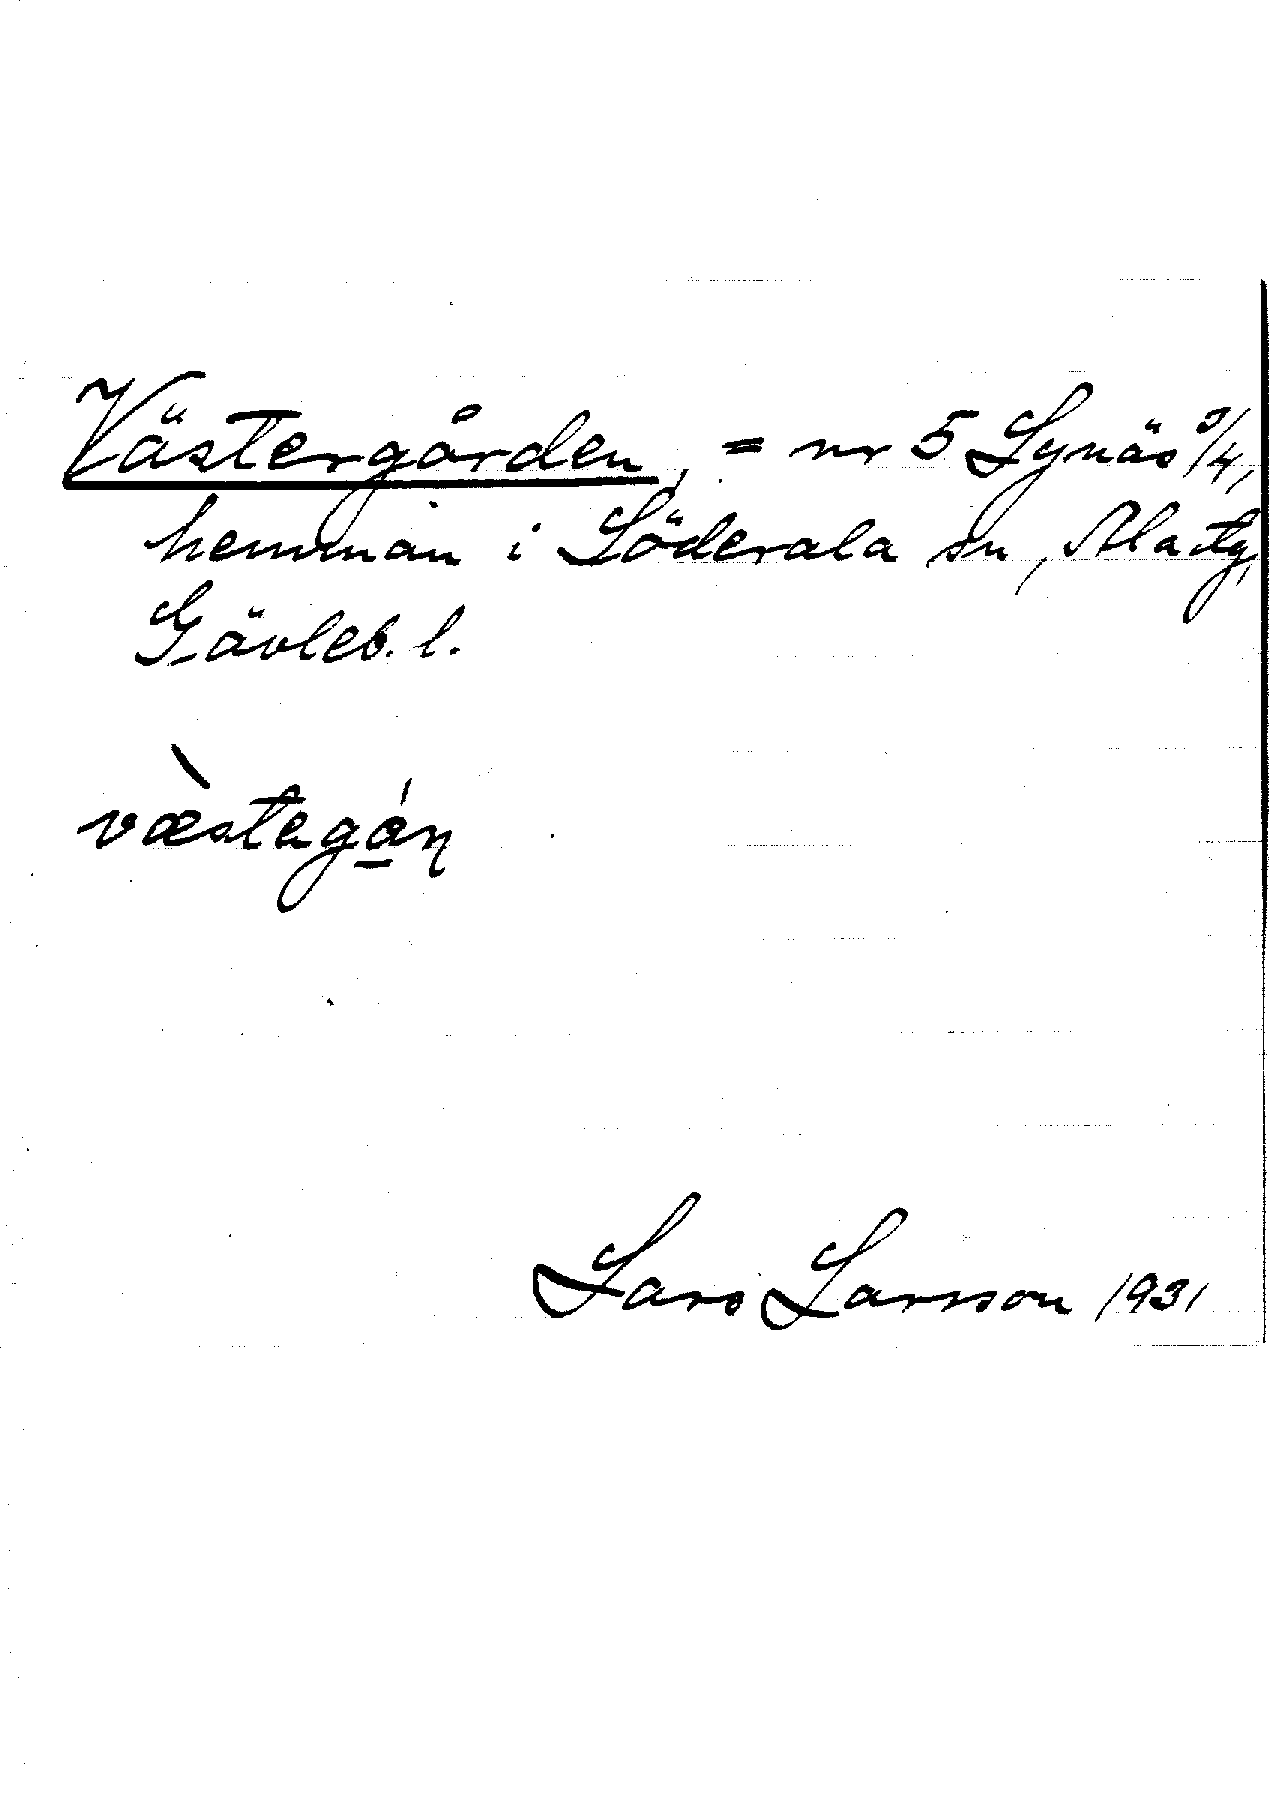 Västergården, = nr 5 Lynäs 3/4,
hemman i Söderala sn, Ala tg,
Gävleb. l.
væ̀stagán
Lars Larsson 1931